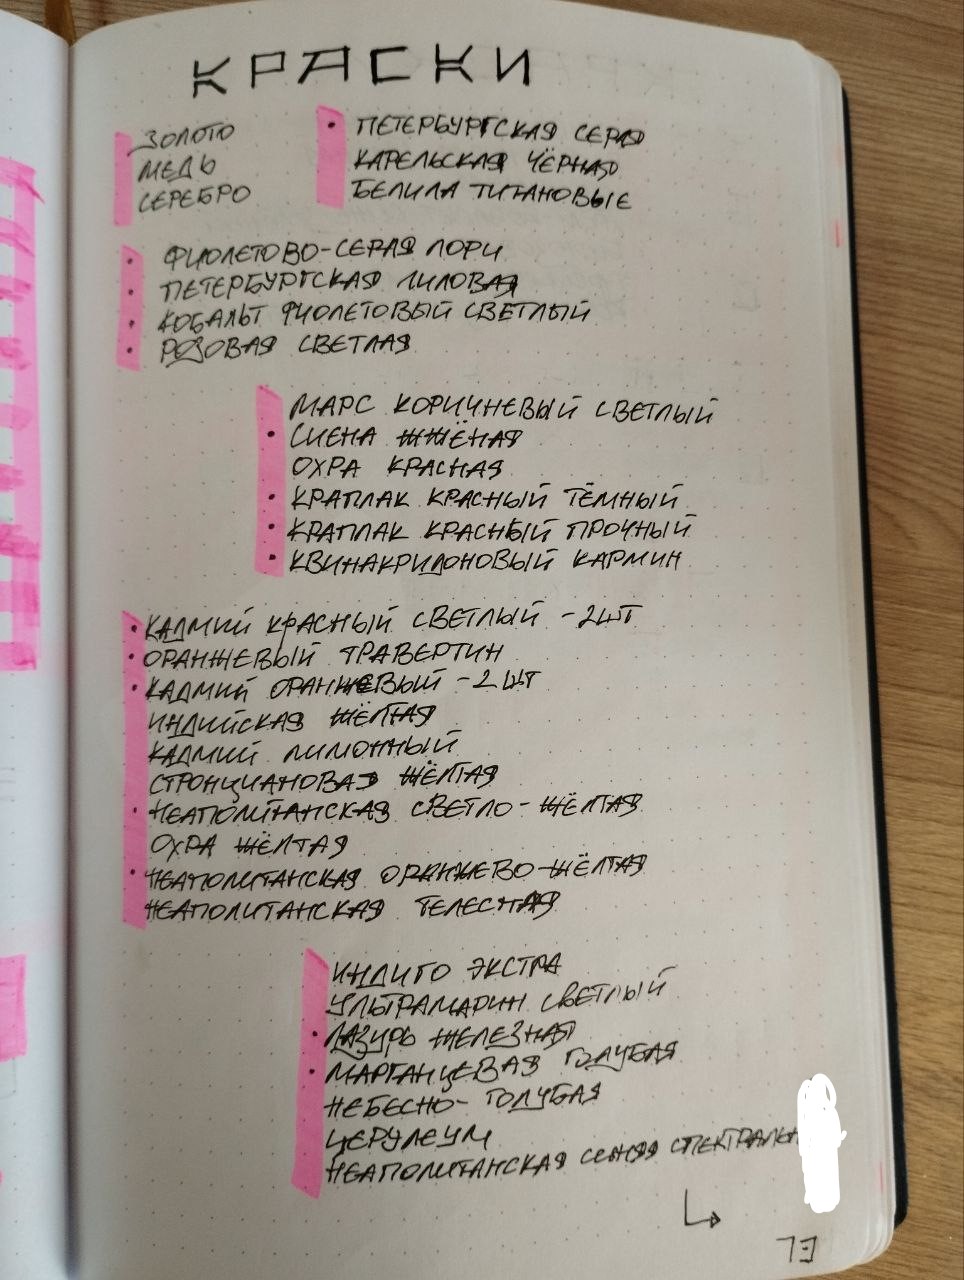 КРАСКИ
ЗОЛОТО
МЕДЬ
СЕРЕБРО
• ПЕТЕРБУРГСКАЯ СЕРАЯ
КАРЕЛЬСКАЯ ЧЁРНАЯ
БЕЛИЛА ТИТАНОВЫЕ
• ФИОЛЕТОВО-СЕРАЯ ЛОРИ
• ПЕТЕРБУРГСКАЯ ЛИЛОВАЯ
• КОБАЛЬТ ФИОЛЕТОВЫЙ СВЕТЛЫЙ
• РОЗОВАЯ СВЕТЛАЯ
МАРС КОРИЧНЕВЫЙ СВЕТЛЫЙ
• СИЕНА ЖЖЁНАЯ
ОХРА КРАСНАЯ
• КРАПЛАК КРАСНЫЙ ТЁМНЫЙ
• КРАПЛАК КРАСНЫЙ ПРОЧНЫЙ
• КВИНАКРИДОНОВЫЙ КАРМИН
• КАДМИЙ КРАСНЫЙ СВЕТЛЫЙ - 2ШТ
• ОРАНЖЕВЫЙ ТРАВЕРТИН
• КАДМИЙ ОРАНЖЕВЫЙ - 2 ШТ
ИНДИЙСКАЯ ЖЁЛТАЯ
КАДМИЙ ЛИМОННЫЙ
СТРОНЦИАНОВАЯ ЖЁЛТАЯ
• НЕАПОЛИТАНСКАЯ СВЕТЛО-ЖЁЛТАЯ
ОХРА ЖЁЛТАЯ
• НЕАПОЛИТАНСКАЯ ОРАНЖЕВО-ЖЁЛТАЯ
НЕАПОЛИТАНСКАЯ ТЕЛЕСНАЯ
ИНДИГО ЭКСТРА
УЛЬТРАМАРИН СВЕТЛЫЙ
• ЛАЗУРЬ ЖЕЛЕЗНАЯ
• МАРГАНЦЕВАЯ ГОЛУБАЯ
НЕБЕСНО-ГОЛУБАЯ
ЦЕРУЛЕУМ
НЕАПОЛИТАНСКАЯ СИНЯЯ